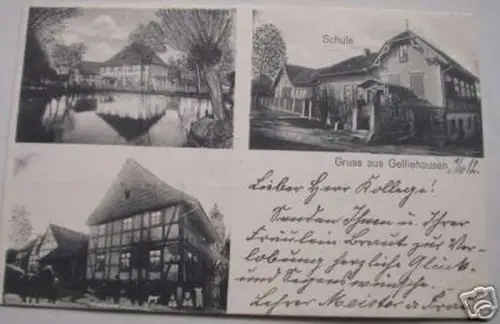 Schule
Gruss aus Gelliehausen,
Lieber Herr Kollege!
Senden Ihnen u. Ihrer
Fräulein Braut zur Ver-
lobung herzliche Glück-
und Segenswünsche.
Lehrer Meister u. Frau
ebY